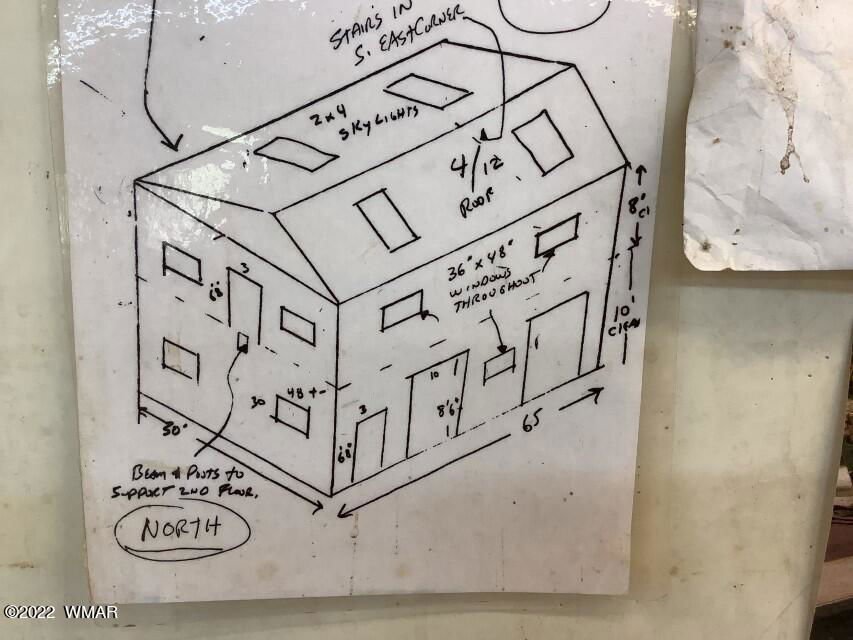 STAIRS IN
S. EAST CORNER
2x4
SKYLIGHTS
4/12
ROOF
8'
10'
CLEAR
36" x 48"
WINDOWS
THROUGHOUT
3
6'8"
30
48 +-
3
6'8"
10
8'6"
50'
65
BEAM & POSTS to
SUPPORT 2ND FLOOR.
NORTH
©2022 WMAR